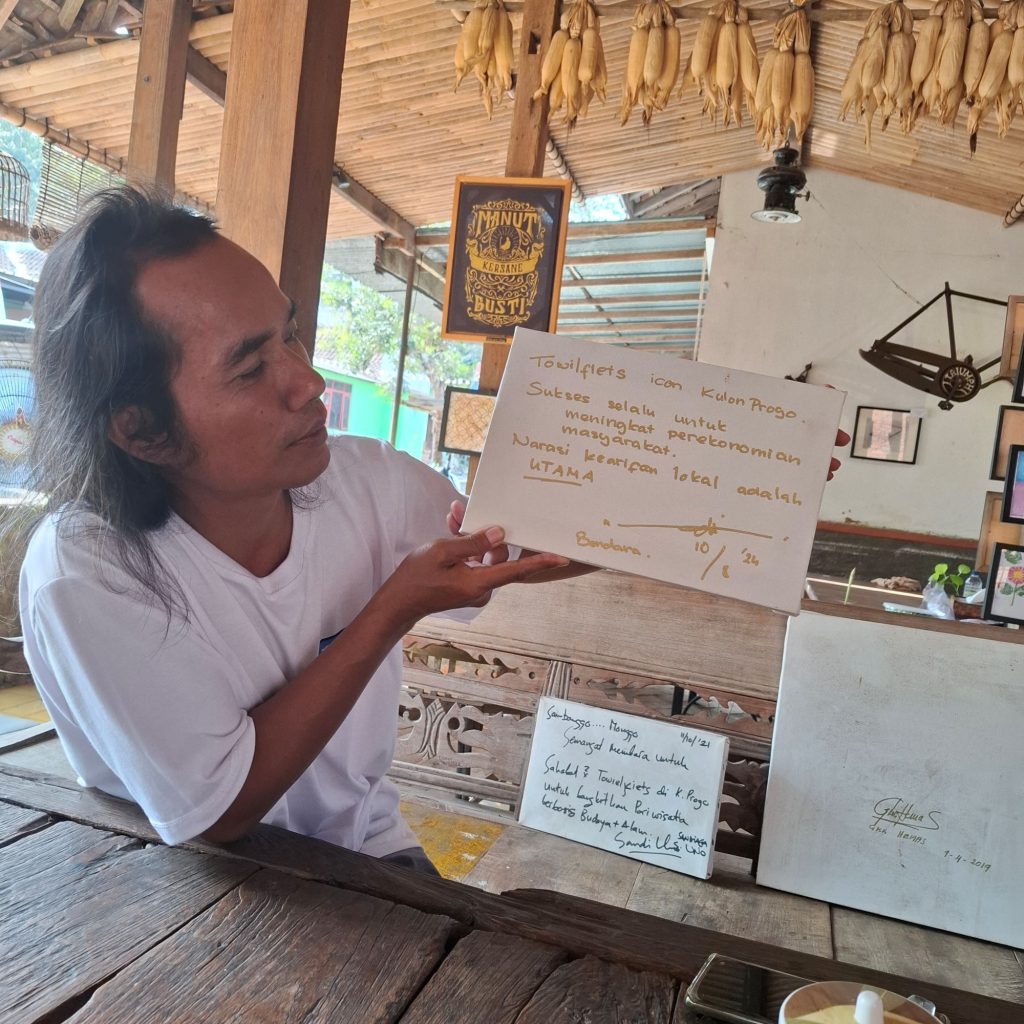 MANUT
KERSANE
GUSTI
TRIUMPH
Towilfiets icon Kulon Progo.
Sukses selalu untuk
meningkat perekonomian
masyarakat.
Narasi kearifan lokal adalah
UTAMA
Bendara.
10/8 '24
Sambanggo.... Monggo 11/10/'21
Semangat membara untuk
Sahabat2 Towielfiets di K. Progo
untuk bangkitkan Pariwisata
berbasis Budaya + Alam.
Sandi Uno
SANDIAGA UNO
9-4-2019